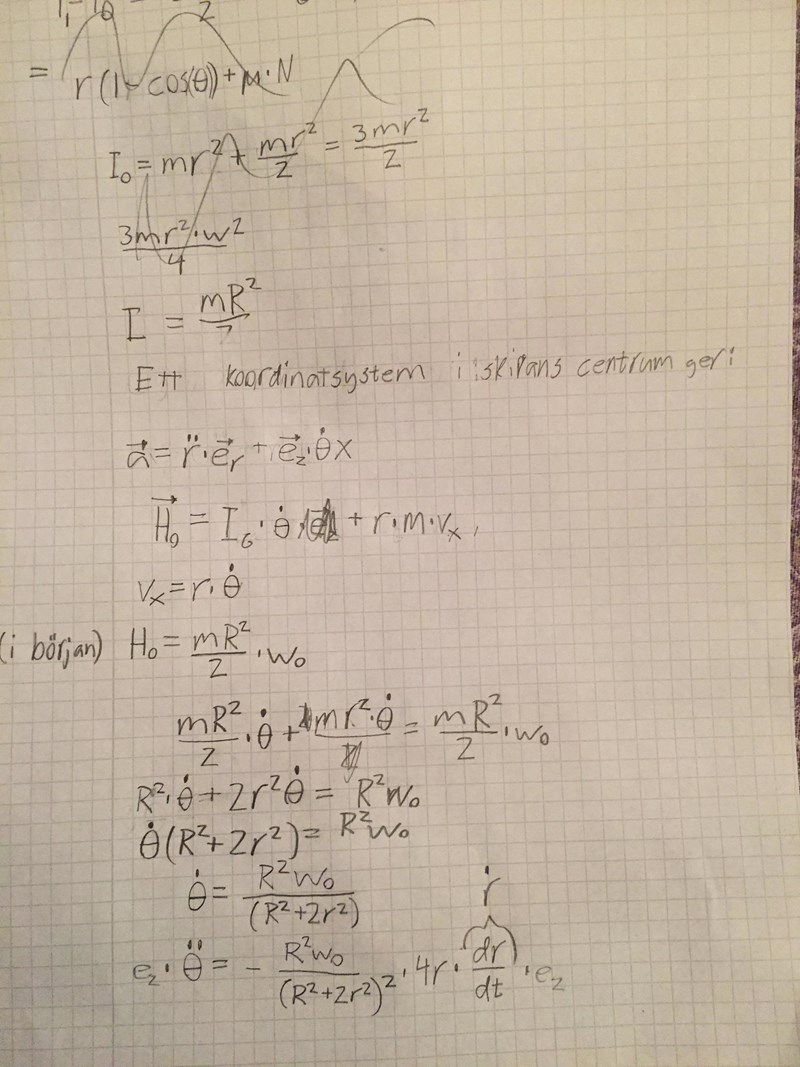 = r(1 - cos(θ)) + μ·N
I₀ = mr² + mr²/2 = 3mr²/2
3mr²·w²/4
I = mR²/2
Ett koordinatsystem i skivans centrum ger:
a⃗ = r̈·e⃗ᵣ + e⃗_z·θ̇ x
H⃗₀ = I_G·θ̇ + r·m·vₓ,
vₓ = r·θ̇
(i början) H₀ = mR²/2 · w₀
mR²/2 · θ̇ + mr²·θ̇ = mR²/2 · w₀
R²·θ̇ + 2r²θ̇ = R²w₀
θ̇(R²+2r²) = R²w₀
θ̇ = R²w₀/(R²+2r²)
ṙ
e_z·θ̈ = - R²w₀/(R²+2r²)² · 4r · (dr/dt) · e_z